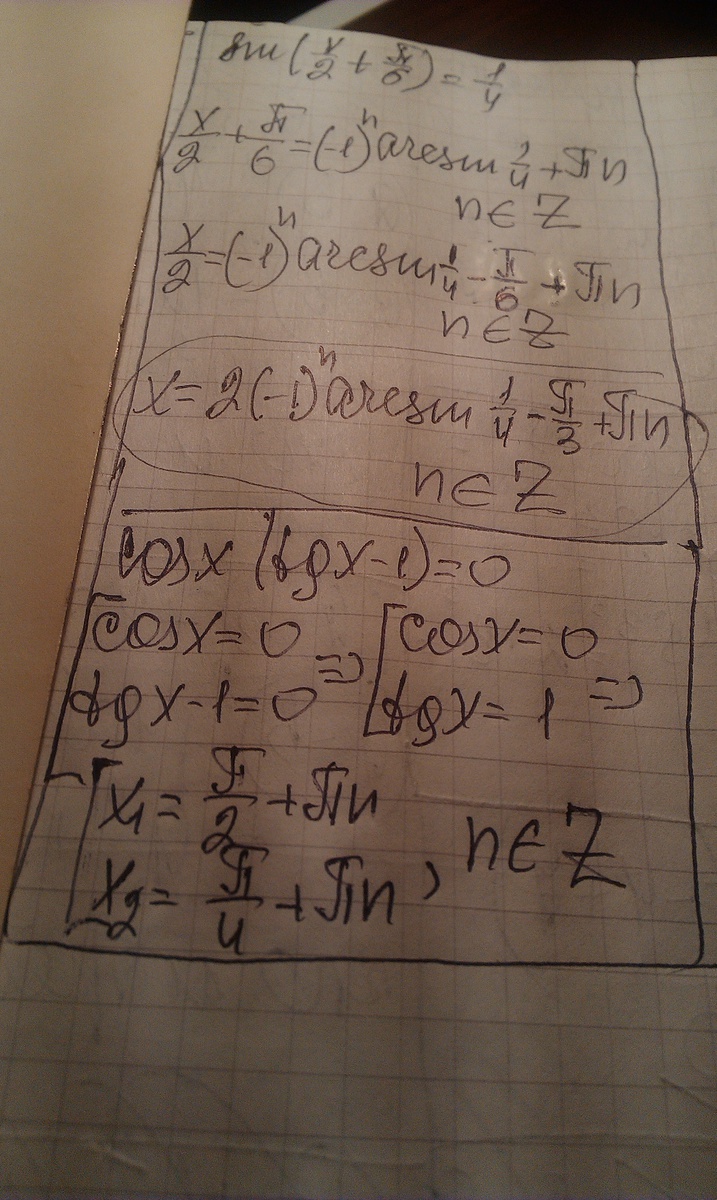 sin(x/2 + π/6) = 1/4
x/2 + π/6 = (-1)^n arcsin 1/4 + πn
n ∈ Z
x/2 = (-1)^n arcsin 1/4 - π/6 + πn
n ∈ Z
x = 2(-1)^n arcsin 1/4 - π/3 + πn
n ∈ Z
cosx (tgx-1) = 0
[cosx = 0 => [cosx = 0
tgx-1 = 0 tgx = 1 =>
[x₁ = π/2 + πn
x₂ = π/4 + πn, n ∈ Z